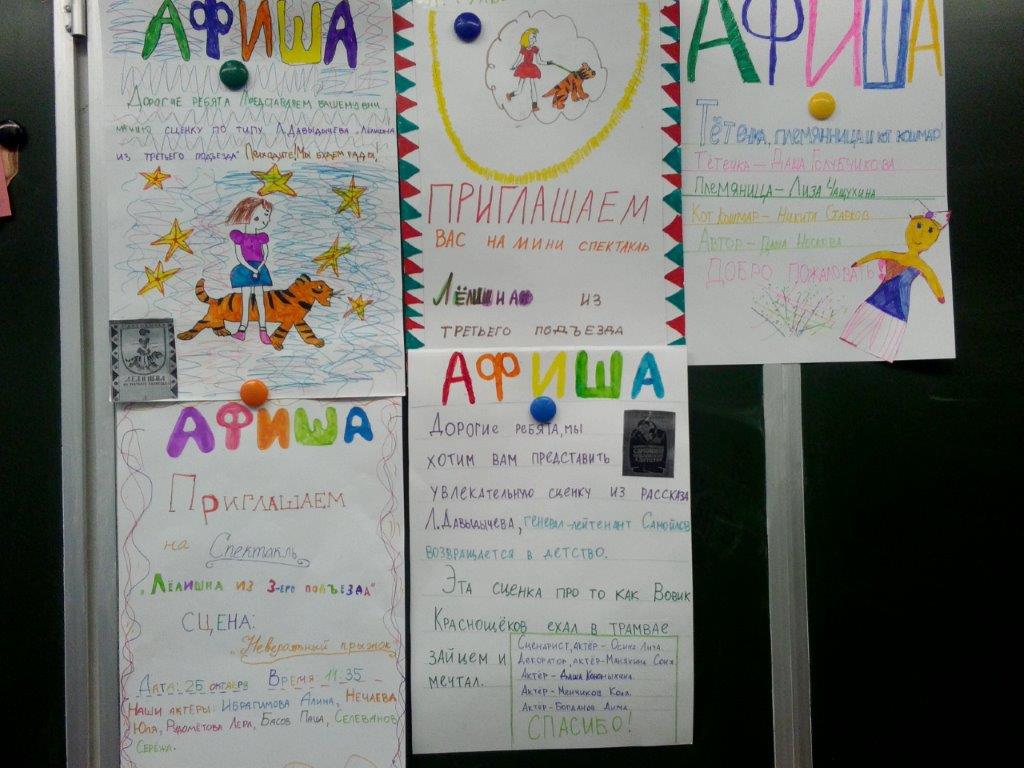 АФИША
Дорогие ребята Представляем вашему вни
манию сценку по типу Л.Давыдычева „Лёлишна
из третьего подъезда" Приходите! Мы будем рады!
ЛЁЛИШНА
ПРИГЛАШАЕМ
ВАС НА МИНИ СПЕКТАКЛЬ
ЛЁЛИШНА ИЗ
ТРЕТЬЕГО ПОДЪЕЗДА
АФИША
Тётечка, племянница и кот кошмар
Тётечка - Даша Голубчикова
Племяница - Лиза Чащухина
Кот кошмар - Никита Старков
Автор - Даша Носкова
Добро пожаловать
АФИША
Приглашаем
на Спектакль
„Лёлишна из 3-его подъезда"
СЦЕНА:
„Невероятный прыжок
Дата: 25 октября Время 11:35
Наши актёры: Ибрагимова Алина, Нечаева
Юля, Рудометова Лера, Басов Паша, Селеванов
Серёжа.
АФИША
Дорогие ребята, мы
хотим вам представить
увлекательную сценку из рассказа
Л.Давыдычева, генерал-лейтенант Самойлов
возвращается в детство.
Эта сценка про то как Вовик
Краснощёков ехал в трамвае
зайцем и
мечтал.
Сценарист, актёр - Осина Лиза.
Декоратор, актёр - Манякина Соня.
Актёр -
Актёр - Менчиков Коля.
Актёр - Богданов Дима.
СПАСИБО!